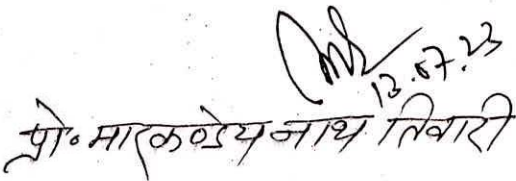 13.07.23
प्रो॰ मारकण्डेय नाथ तिवारी